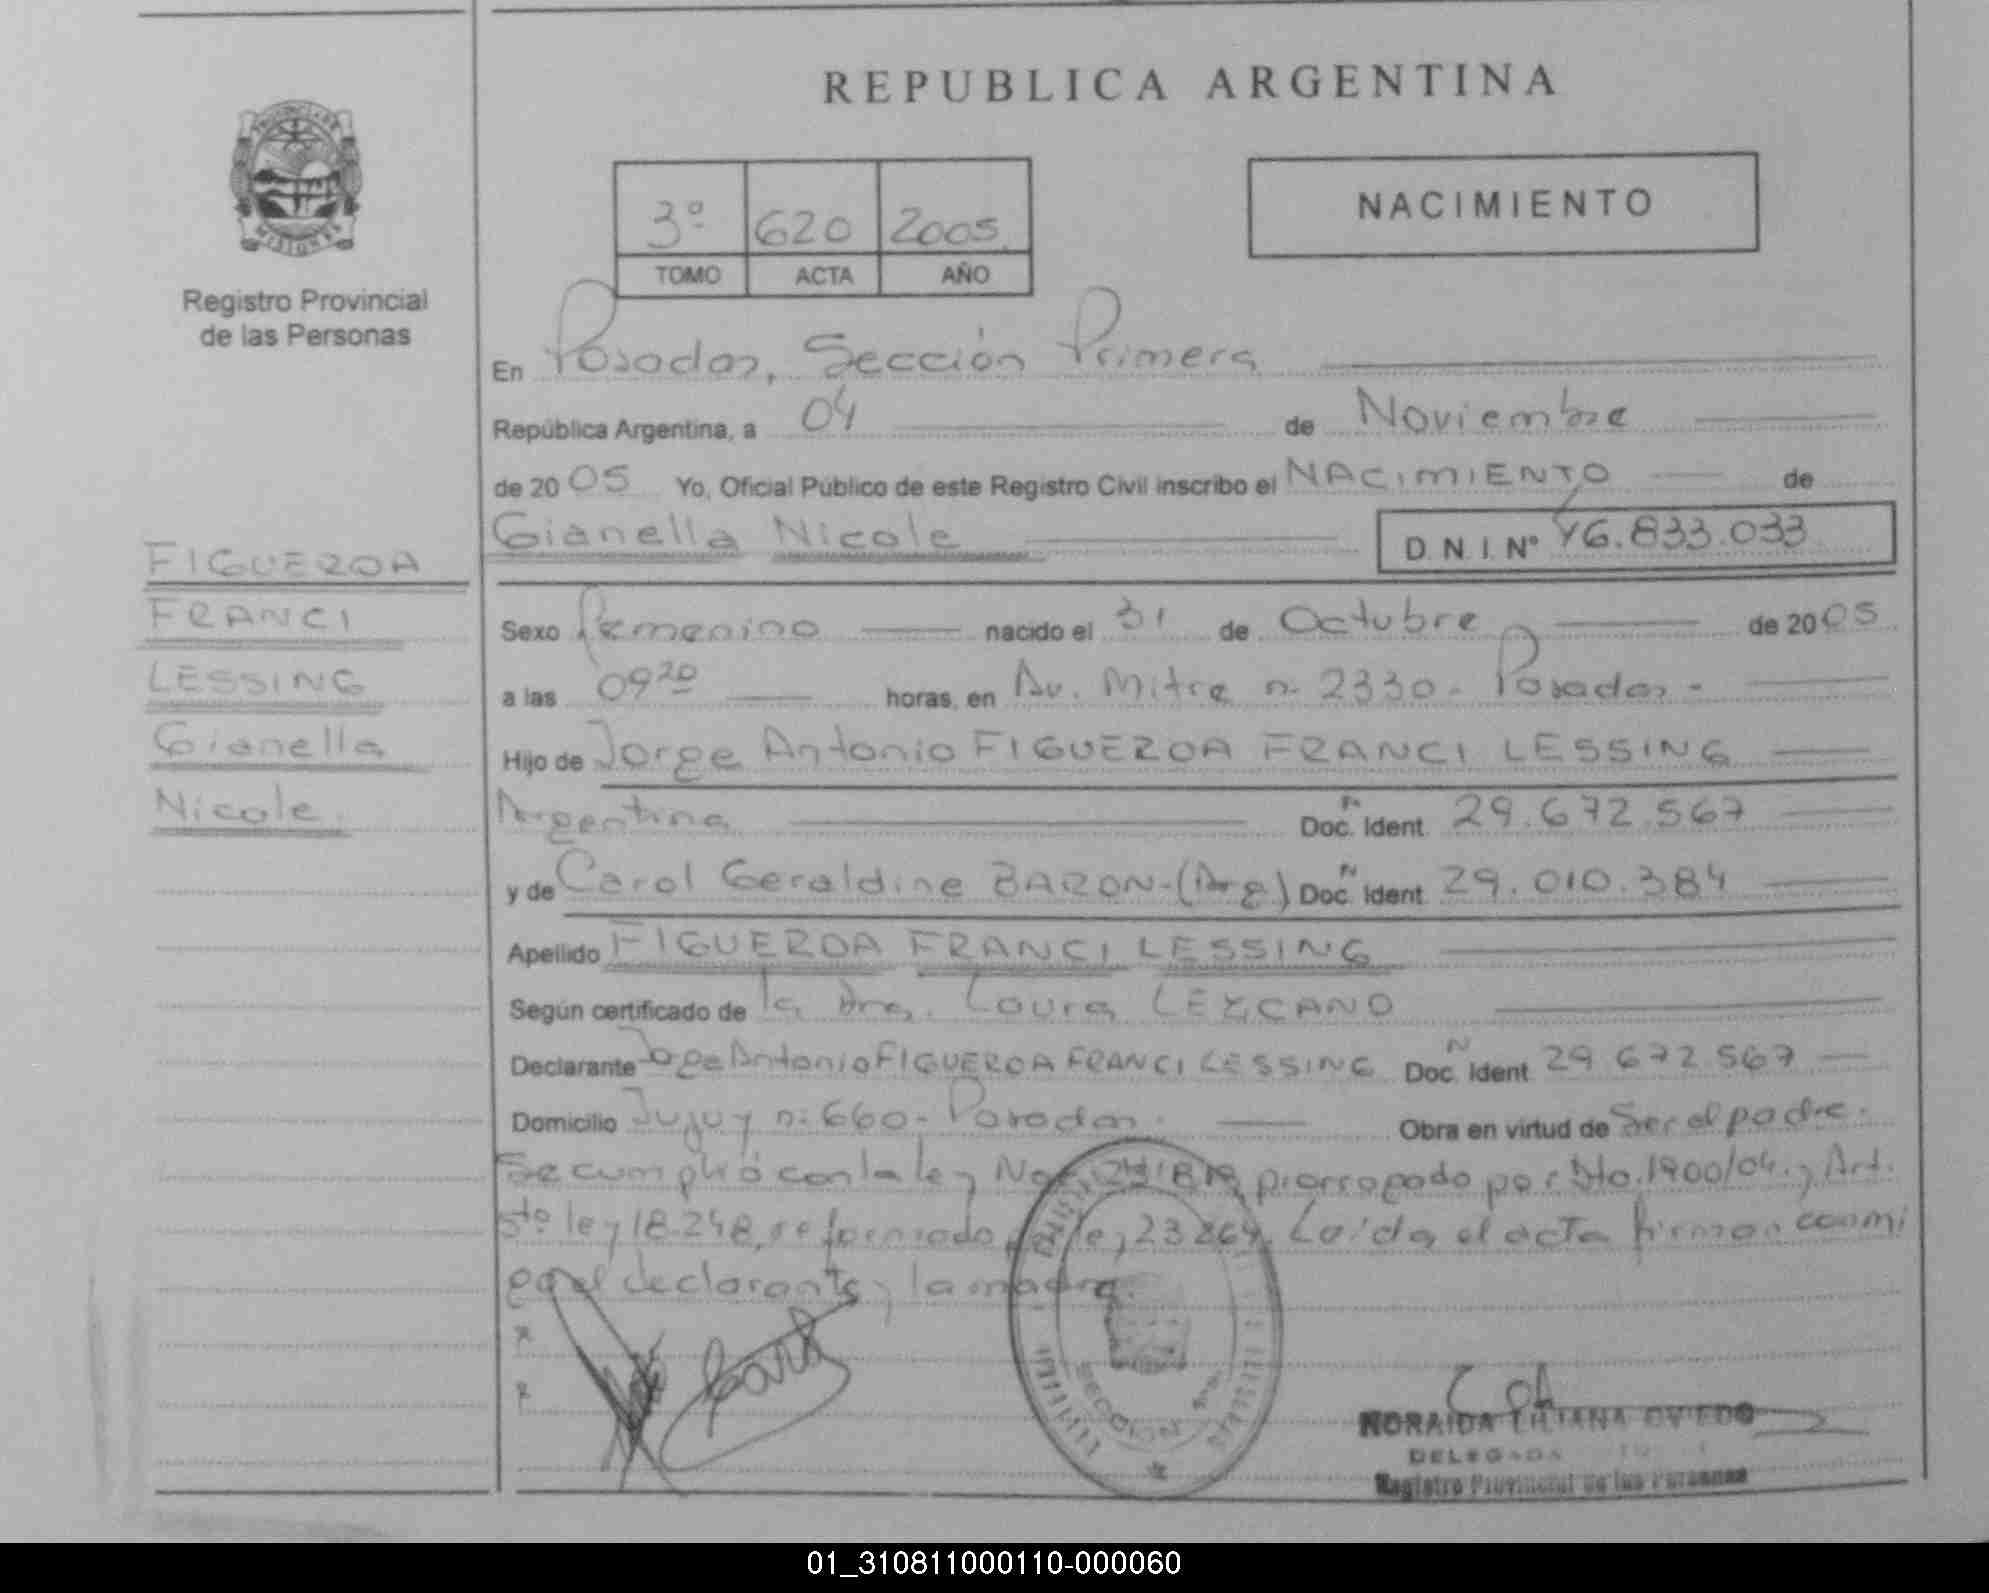 REPUBLICA ARGENTINA
PROVINCIA DE
MISIONES
Registro Provincial
de las Personas
3º 620 2005
TOMO ACTA AÑO
NACIMIENTO
En Posadas, Sección Primera
República Argentina, a 04 de Noviembre
de 2005 Yo, Oficial Público de este Registro Civil inscribo el NACIMIENTO de
Gianella Nicole D.N.I.Nº 46.833.033
FIGUEROA
FRANCI
LESSING
Gianella
Nicole
Sexo femenino nacido el 31 de Octubre de 2005
a las 09 20 horas, en Av. Mitre nº 2330 - Posadas -
Hijo de Jorge Antonio FIGUEROA FRANCI LESSING
Argentina Doc. Ident. 29.672.567
y de Carol Geraldine BARON - (Arg) Doc. Ident. 29.010.384
Apellido FIGUEROA FRANCI LESSING
Según certificado de la Dra. Laura LEZCANO
Declarante Jorge Antonio FIGUEROA FRANCI LESSING Doc. Ident. 29.672.567
Domicilio Jujuy nº 660 - Posadas. Obra en virtud de Ser el padre.
Se cumplió con la ley No prorrogado por Dto. 1900/04. y Art.
5to ley 18.248, reformado ley 23.264. Leída el acta firman conmi
go el declarante y la madre.
x
x
Carol
SECCION 1ra
NORAIDA LILIANA OVIEDO
DELEGADA
Registro Provincial de las Personas
01_310811000110-000060